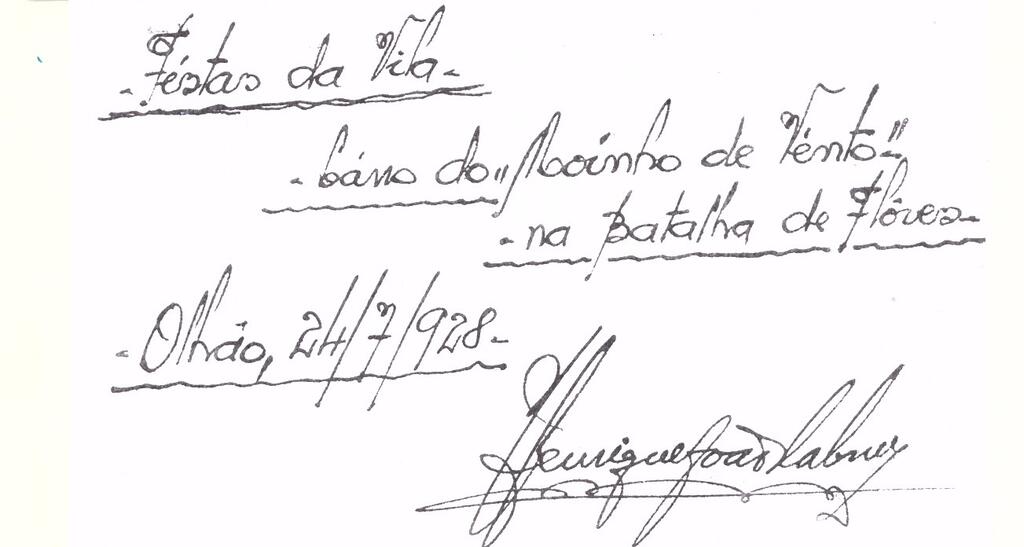 - Féstas da Vila -
- Cárro do "Moinho de Vénto"
- na Batalha de Flôres -
- Olhão, 24/7/928 -
Henrique João